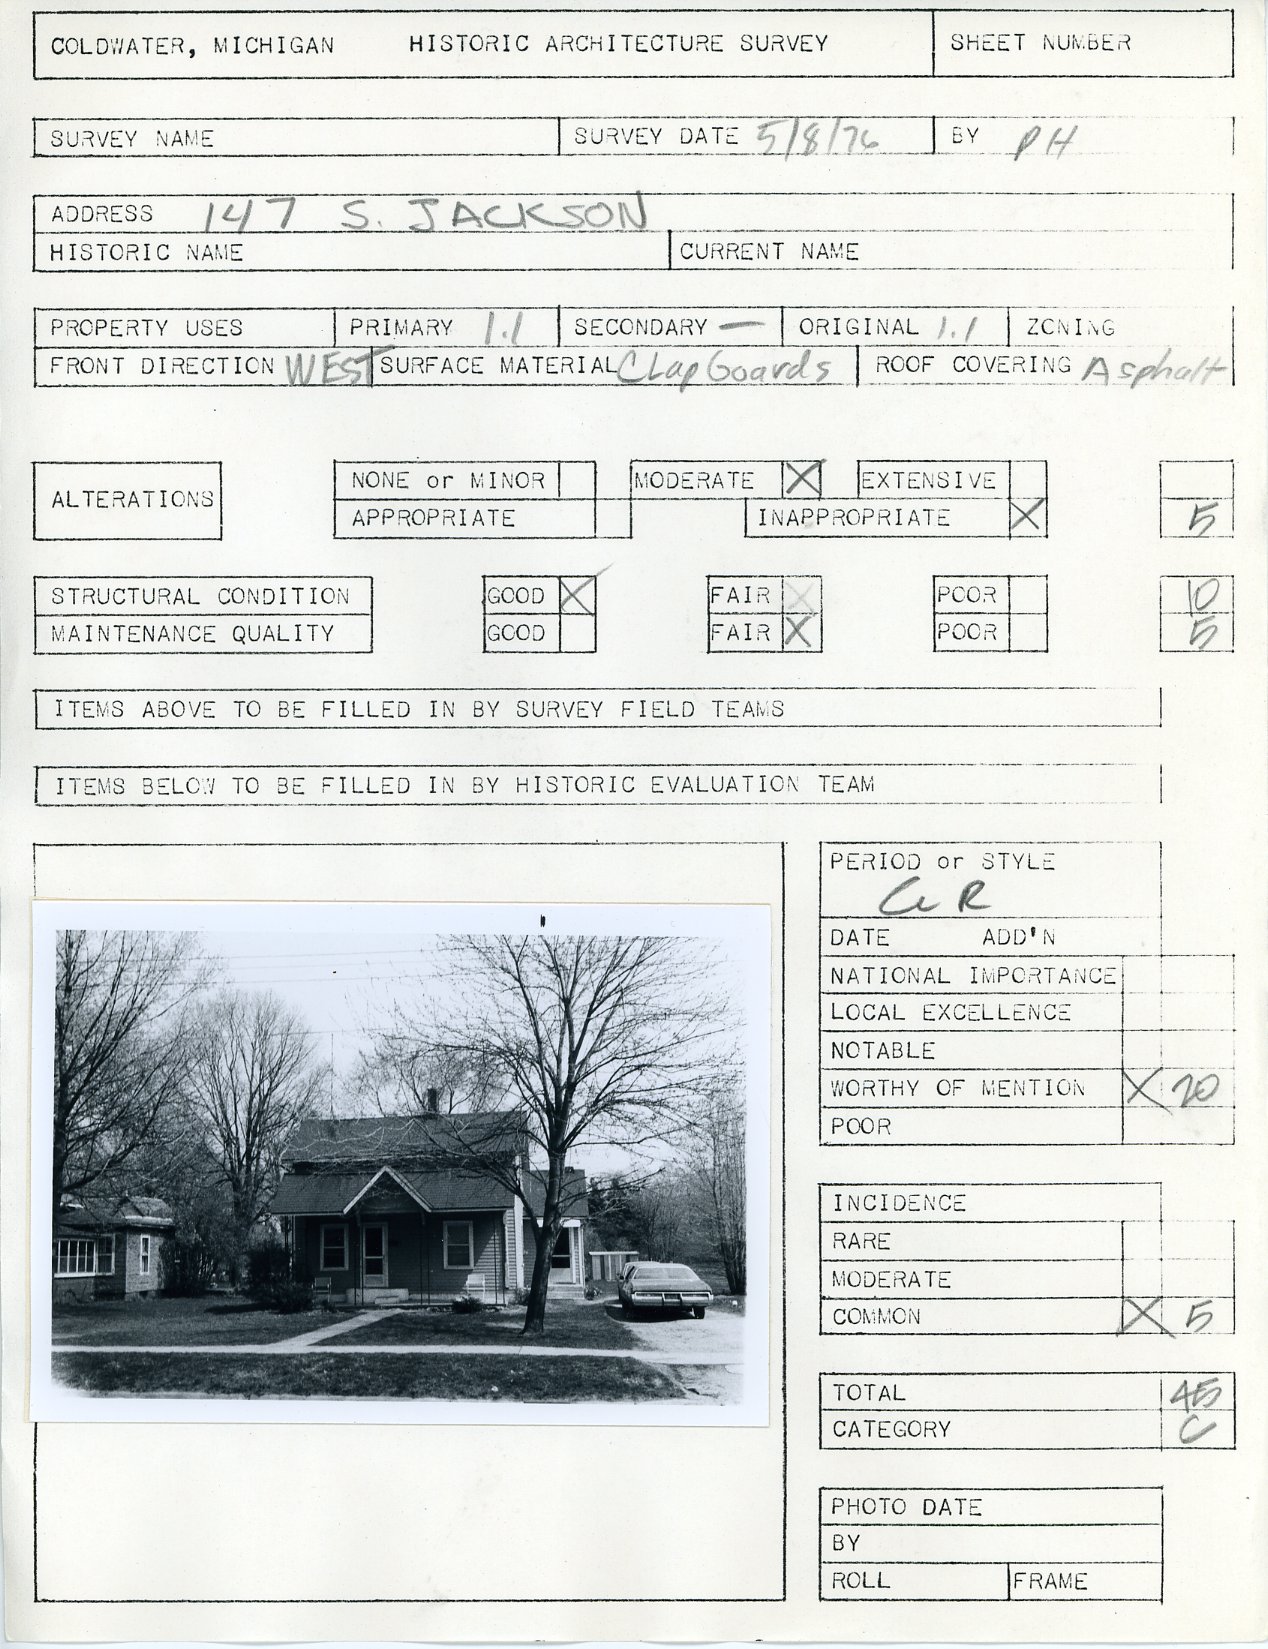 COLDWATER, MICHIGAN HISTORIC ARCHITECTURE SURVEY SHEET NUMBER
SURVEY NAME SURVEY DATE 5/8/76 BY PH
ADDRESS 147 S. JACKSON
HISTORIC NAME CURRENT NAME
PROPERTY USES PRIMARY 1.1 SECONDARY — ORIGINAL 1.1 ZONING
FRONT DIRECTION WEST SURFACE MATERIAL Clapboards ROOF COVERING Asphalt
ALTERATIONS
NONE or MINOR MODERATE X EXTENSIVE
APPROPRIATE INAPPROPRIATE X 5
STRUCTURAL CONDITION GOOD X FAIR X POOR 10
MAINTENANCE QUALITY GOOD FAIR X POOR 5
ITEMS ABOVE TO BE FILLED IN BY SURVEY FIELD TEAMS
ITEMS BELOW TO BE FILLED IN BY HISTORIC EVALUATION TEAM
PERIOD or STYLE
GR
DATE ADD'N
NATIONAL IMPORTANCE
LOCAL EXCELLENCE
NOTABLE
WORTHY OF MENTION X 20
POOR
INCIDENCE
RARE
MODERATE
COMMON X 5
TOTAL 45
CATEGORY C
PHOTO DATE
BY
ROLL FRAME